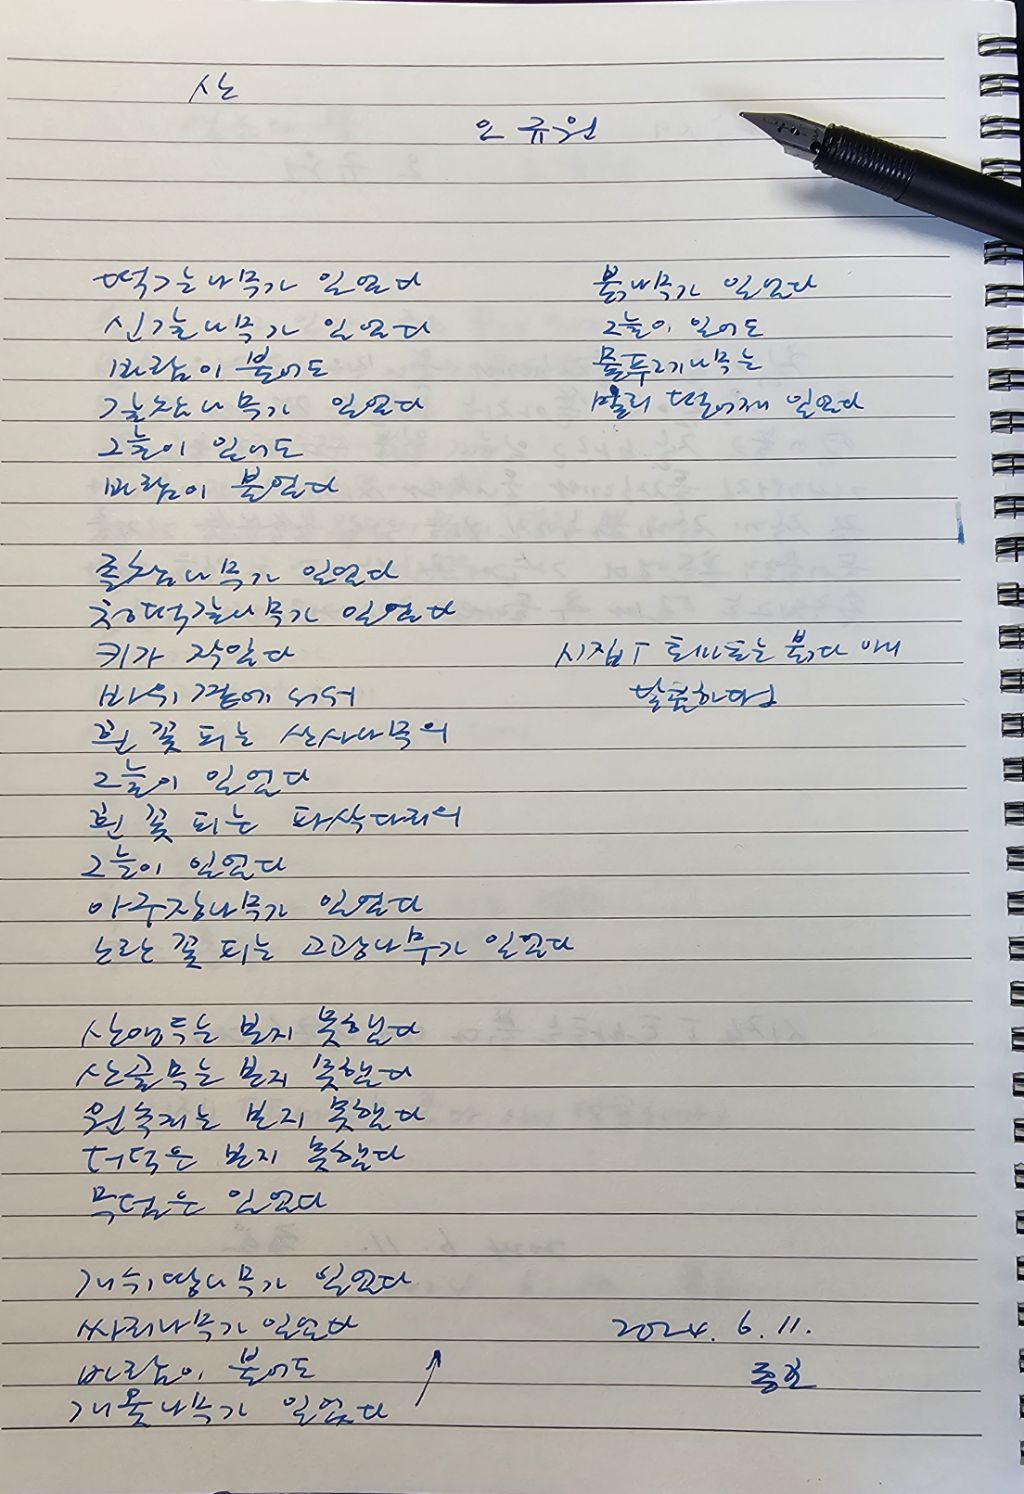 산
오 규원
떡갈나무가 있었다
신갈나무가 있었다
바람이 불어도
갈참나무가 있었다
그늘이 있어도
바람이 불었다
졸참나무가 있었다
청떡갈나무가 있었다
키가 작았다
바위 곁에 서서
흰 꽃 피는 산사나무의
그늘이 있었다
흰 꽃 피는 파삭다리의
그늘이 있었다
아구장나무가 있었다
노란 꽃 피는 고광나무가 있었다
산앵두는 보지 못했다
산골무는 보지 못했다
원추리는 보지 못했다
더덕은 보지 못했다
무덤은 있었다
개쉬땅나무가 있었다
싸리나무가 있었다
바람이 불어도
개옻나무가 있었다
붉나무가 있었다
그늘이 있어도
물푸레나무는
멀리 떨어져 있었다
시집『토마토는 붉다 아니
달콤하다』
2024. 6. 11.